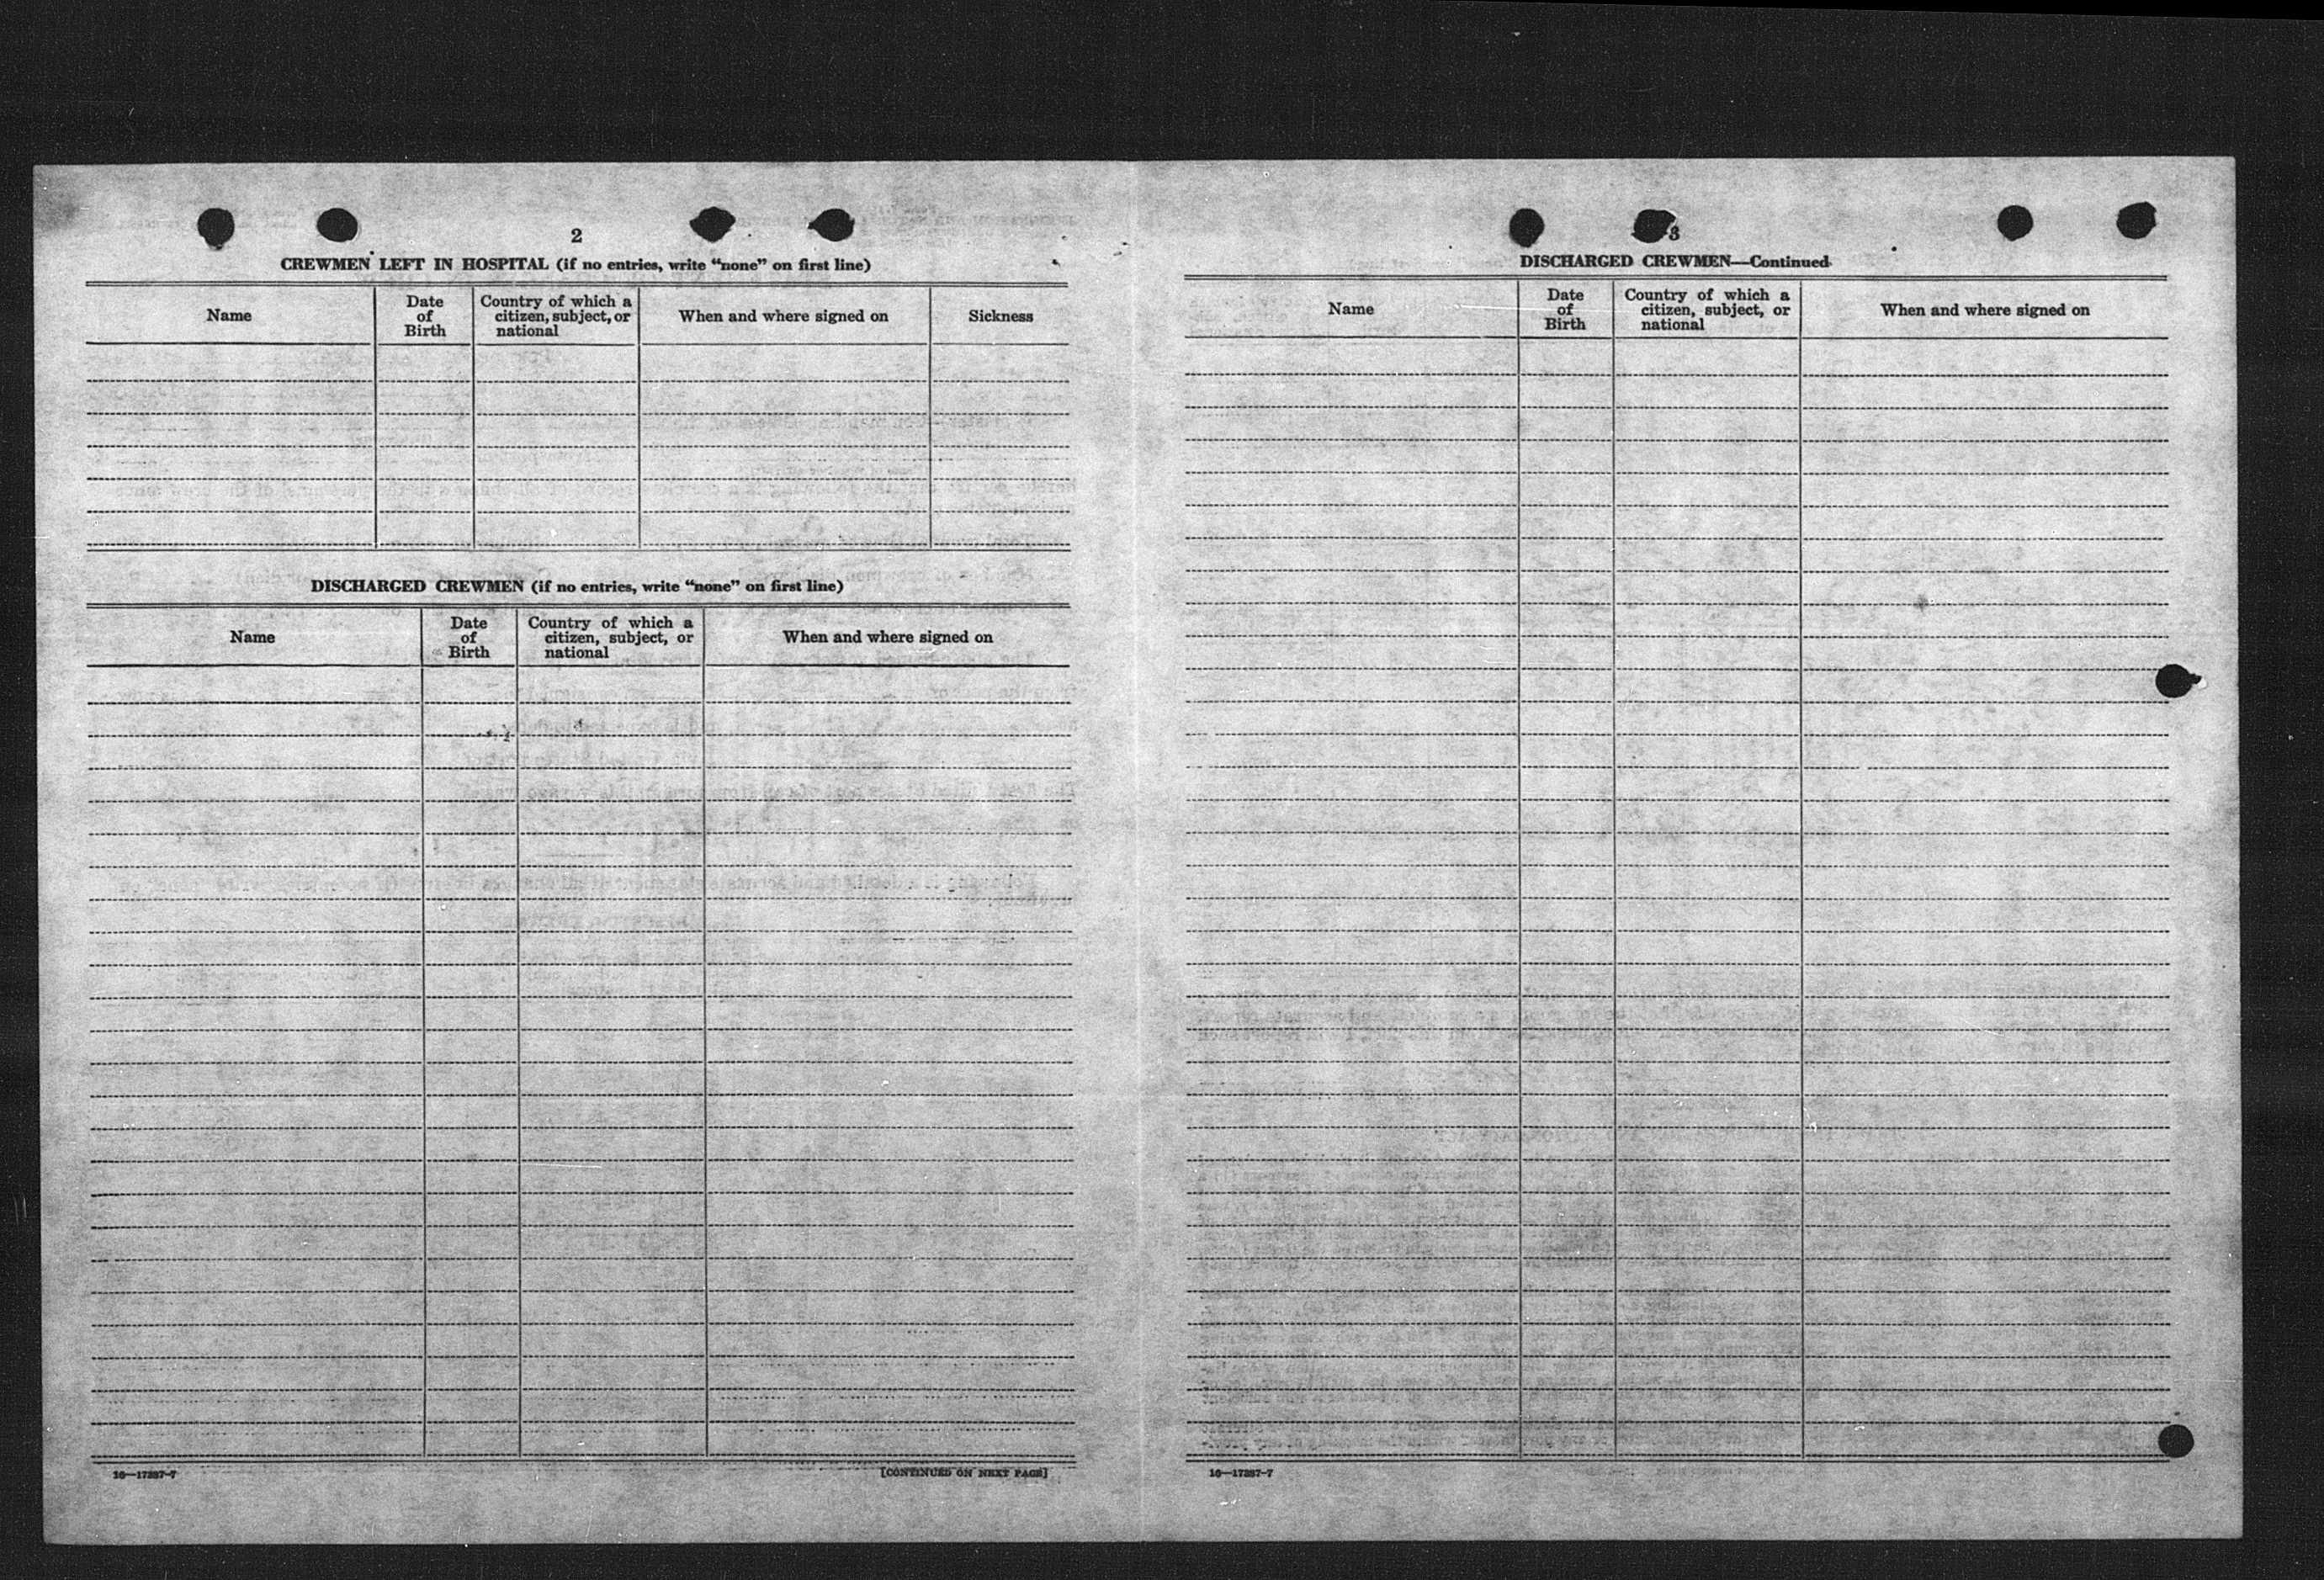 2
CREWMEN LEFT IN HOSPITAL (if no entries, write “none” on first line)
Name
Date
of
Birth
Country of which a
citizen, subject, or
national
When and where signed on
Sickness
DISCHARGED CREWMEN (if no entries, write “none” on first line)
Name
Date
of
Birth
Country of which a
citizen, subject, or
national
When and where signed on
16—17287-7
[CONTINUED ON NEXT PAGE]
3
DISCHARGED CREWMEN—Continued
Name
Date
of
Birth
Country of which a
citizen, subject, or
national
When and where signed on
16—17287-7